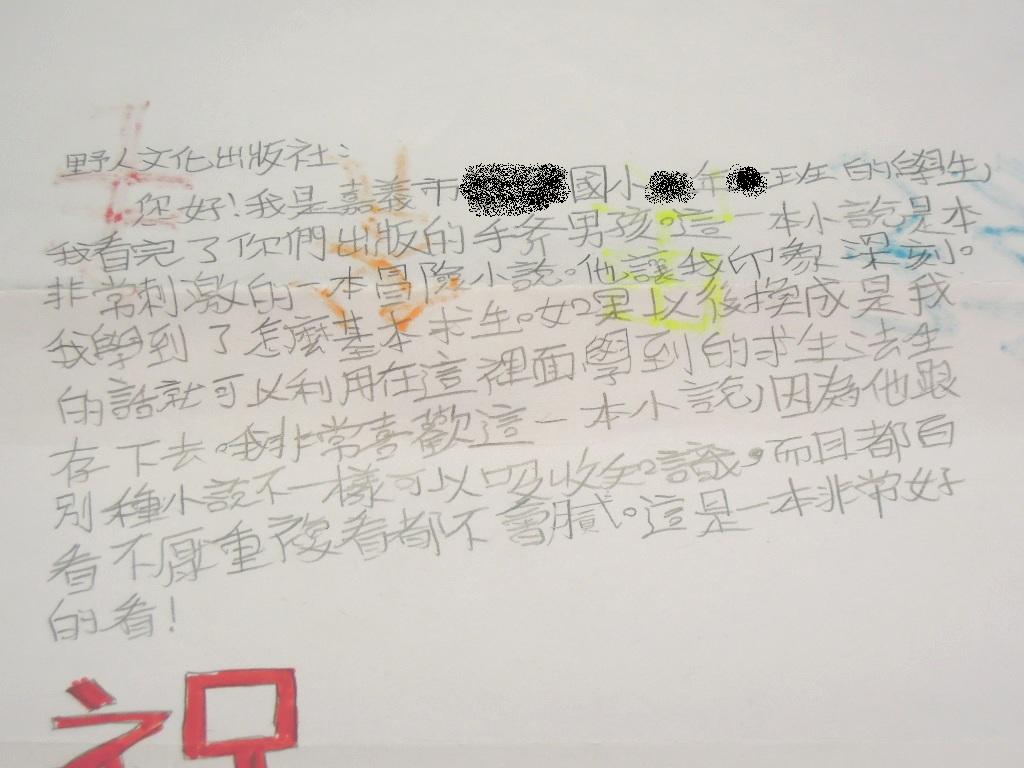 野人文化出版社:
您好!我是嘉義市國小年班的學生,
我看完了你們出版的手斧男孩。這一本小說是本
非常刺激的一本冒險小說。他讓我印象深刻。
我學到了怎麼基本求生。如果以後換成是我
的話就可以利用在這裡面學到的求生、去生
存下去。我非常喜歡這一本小說,因為他跟
別種小說不一樣可以吸收知識,而且都百
看不厭重複看都不會膩。這是一本非常好
的看!
祝